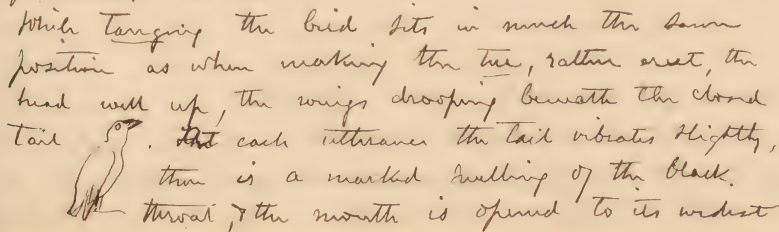 While tanging the bird sits in much the same
position as when making the tee, rather erect, the
head well up, the wings drooping beneath the closed
tail. At each utterance the tail vibrates slightly,
there is a marked swelling of the black
throat, & the mouth is opened to its widest